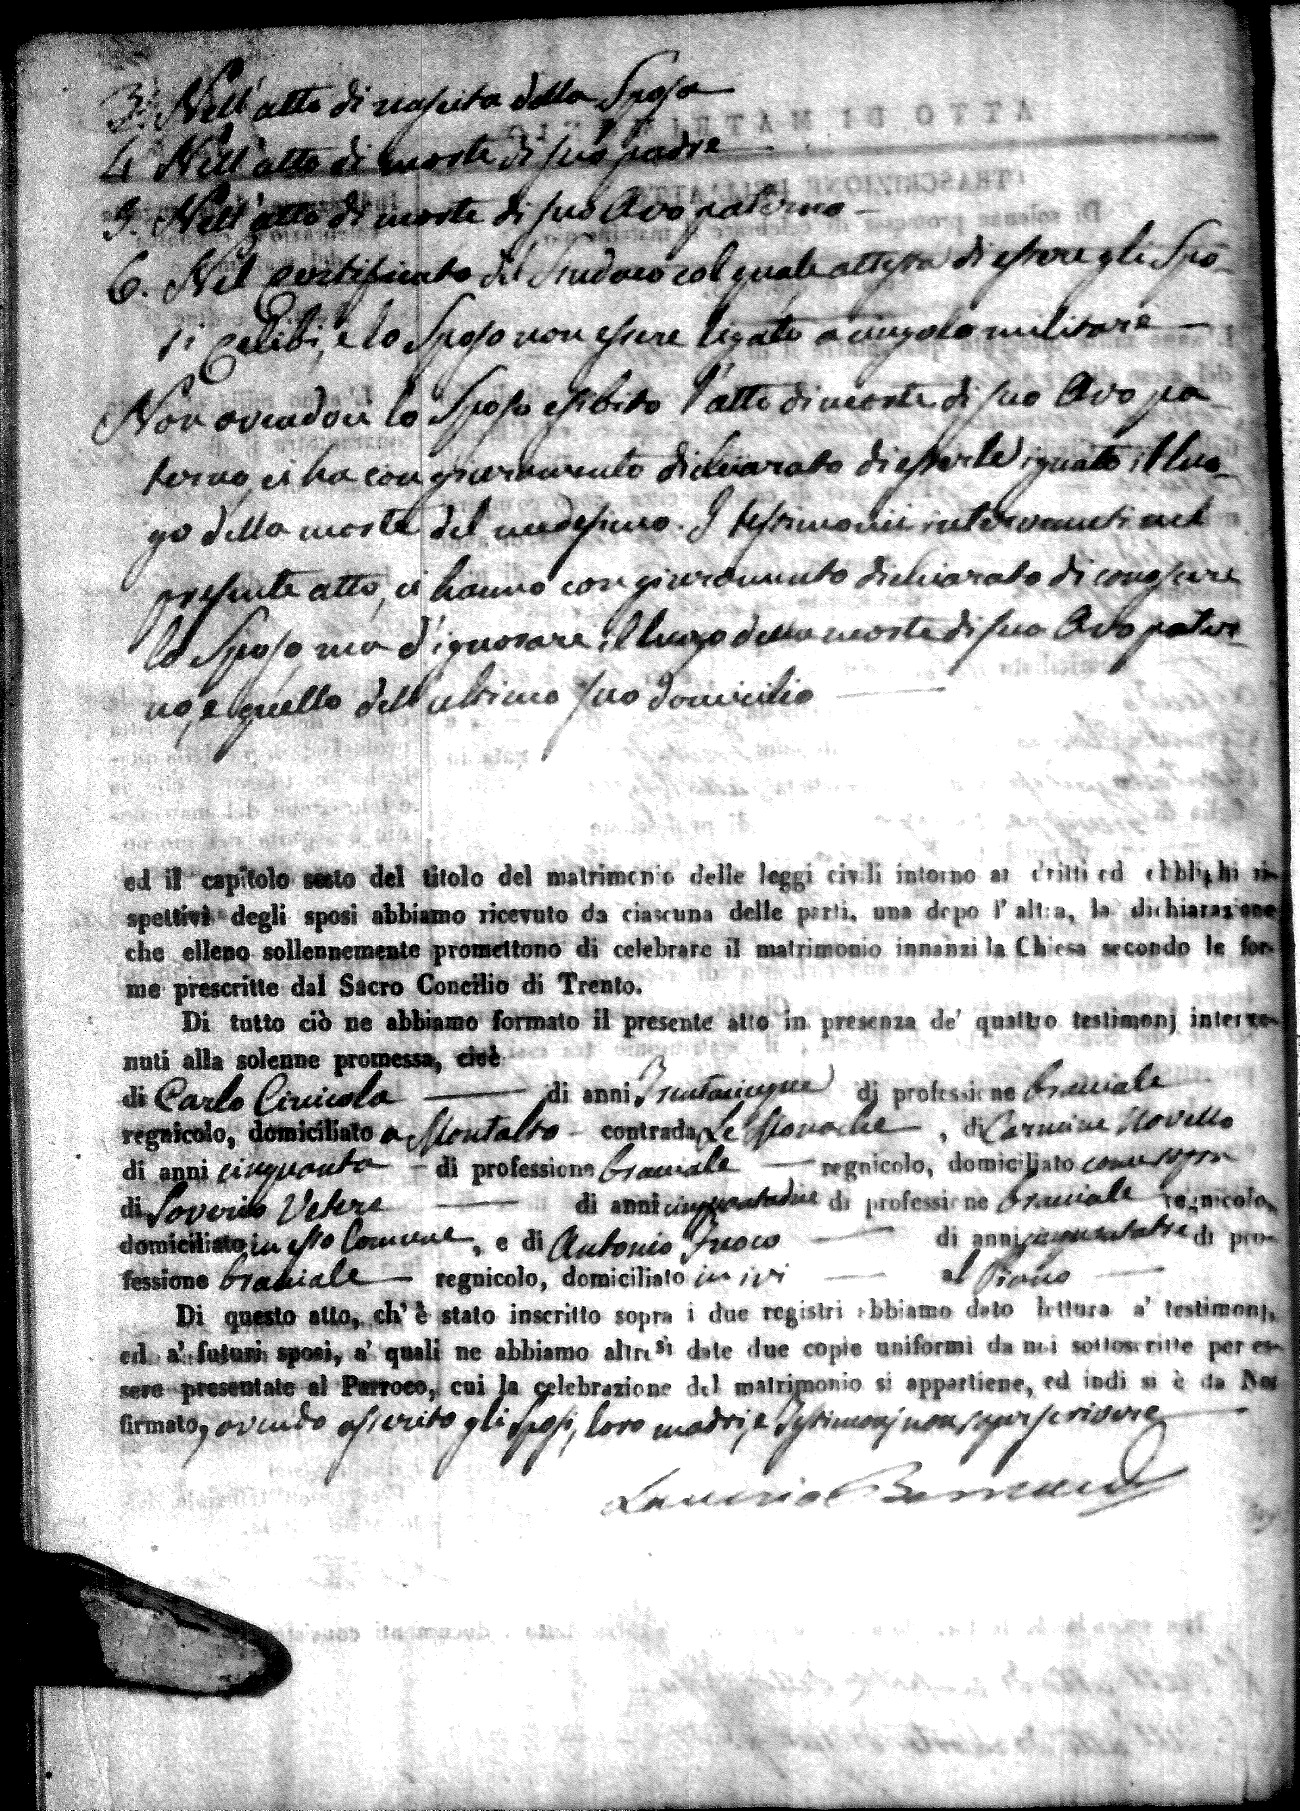 3. Nell'atto di nascita della Sposa
4. Nell'atto di morte di suo padre
5. Nell'atto di morte di suo Avo paterno
6. Nel certificato del Sindaco col quale attesta di essere gli Spo-
si celibi, e lo Sposo non essere legato a vincolo militare
Non avendoci lo Sposo esibito l'atto di morte di suo Avo pa-
terno, ci ha con giuramento dichiarato di esserle ignoto il luo-
go della morte del medesimo. I testimonii intervenuti nel
presente atto, ci hanno con giuramento dichiarato di conoscere
lo Sposo, ma d'ignorare il luogo della morte di suo Avo pater-
no, e quello dell'ultimo suo domicilio
ed il capitolo sesto del titolo del matrimonio delle leggi civili intorno ai dritti ed obblighi ri-
spettivi degli sposi abbiamo ricevuto da ciascuna delle parti, una dopo l'altra, la dichiarazione
che elleno sollennemente promettono di celebrare il matrimonio innanzi la Chiesa secondo le for-
me prescritte dal Sacro Concilio di Trento.
Di tutto ciò ne abbiamo formato il presente atto in presenza de' quattro testimonj interve-
nuti alla solenne promessa, cioè
di Carlo di anni Trentacinque di professione braciale
regnicolo, domiciliato a Montalto contrada Le Monache, di Carmine Novello
di anni cinquanta di professione braciale regnicolo, domiciliato come sopra
di Saverio Vetere di anni cinquantadue di professione braciale regnicolo,
domiciliato in esso Comune, e di Antonio di anni cinquantatre di pro-
fessione braciale regnicolo, domiciliato in ivi al Piano
Di questo atto, ch'è stato inscritto sopra i due registri abbiamo dato lettura a' testimonj,
ed a' futuri sposi, a' quali ne abbiamo altresì date due copie uniformi da noi sottoscritte per es-
sere presentate al Parroco, cui la celebrazione del matrimonio si appartiene, ed indi si è da Noi
firmato, avendo asserito gli Sposi, loro madri, e Testimonj non saper scrivere